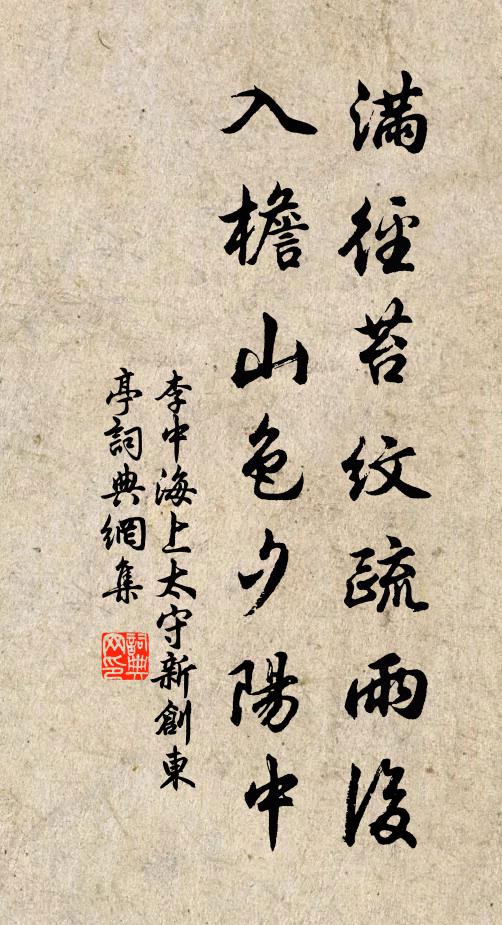 滿徑苔紋疏雨後
入檐山色夕陽中
李中海上太守新創東
亭詞典網集
詞典
网印